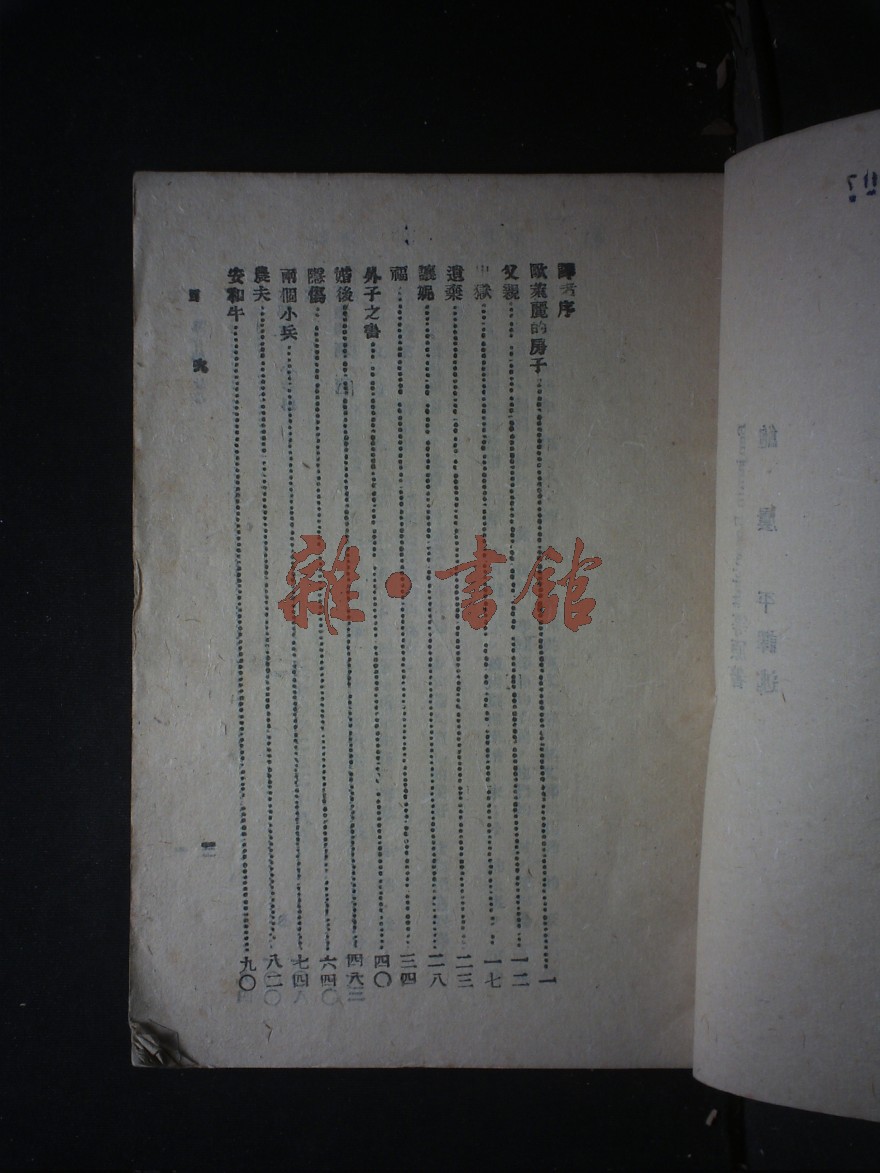 譯者序
歐萊麗的房子 一
父親 一二
獄 一七
遺棄 二三
讓妮 二八
福 三四
外子之書 四〇
婚後 四六
隱傷 六四
兩個小兵 七四
農夫 八二
安和牛 九〇
目 次
雜·書館